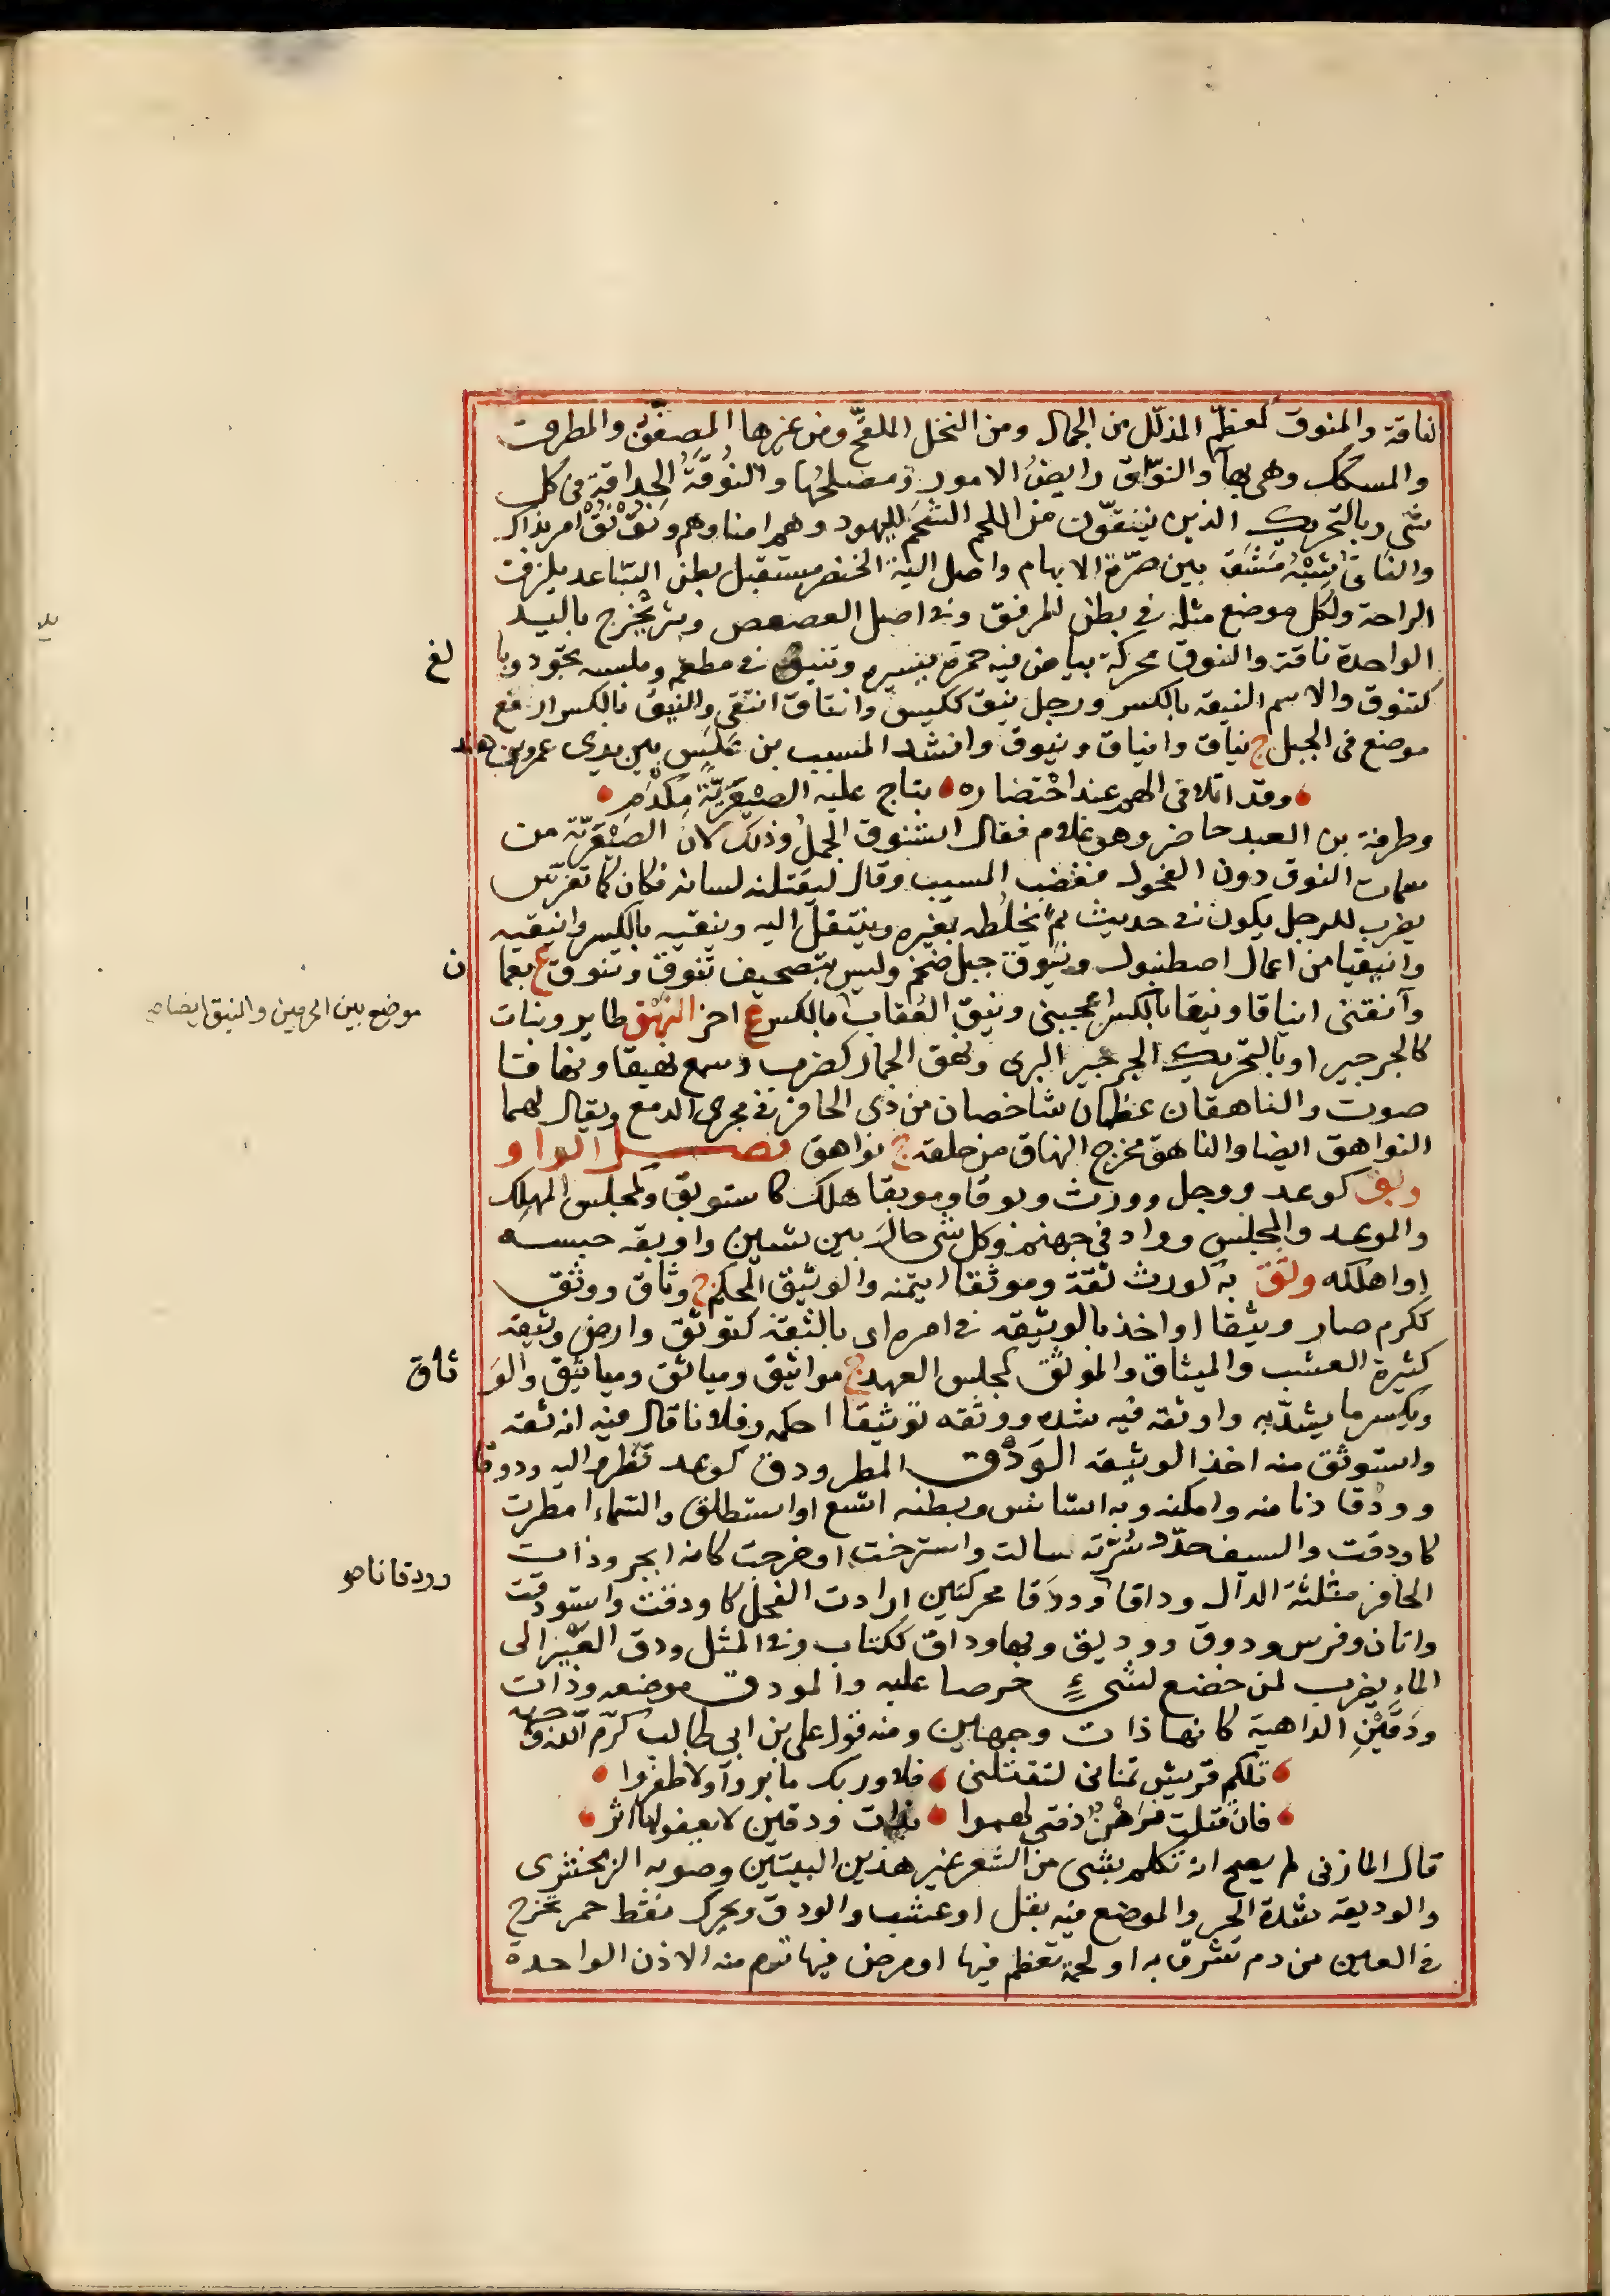 لناقة والمنوق كمعظّم المذلّل من الجمال ومن النخل الملقّح ومن غيرها المصفّف والمطرق
والمسكك وهى بهآ والنوّاق رايضُ الامور ومصلحُها والنُوقَةُ الحذاقة فى كل
شى وبالتحريك الذين ينقّون من اللحم الشحمَ لليهود وهم امناوهم ونُقْ نُقْ امر بذاك
والناق شِبْهُ مَشَق بين ضرّة الابهام واصل الية الخنصر مستقبل بطن السّاعد بلزق
الراحة ولكل موضع مثله فى بطن المرفق وفى اصل العصعص وبثر يخرج باليد
الواحدة ناقة والنوق محركة بياض فيه حمرة يسيرة وتنيق فى مطعمه وملبسه تجوّد وبا لغ
كتنوق والاسم النيقه بالكسر ورجل نيق ككيس وانتاق انتقى والنيق بالكسر ارفع
موضع فى الجبل ج نياق وانياق ونيوق وانشد المسيب بن عَلَس بين يدى عمرو بن هند
وقد اتلافى الهم عند احتضاره بناج عليه الصيعريّة مكدم
وطرفة بن العبد حاضر وهو غلام فقال استنوق الجملُ وذلك لانَ الصَيْعَرِيّة من
سمات النوق دون الفحول فغضب المسيب وقال ليقتلنه لسانه فكان كما تفرّس
يضرب للرجل يكون فى حديث ثم يخلطه بغيره وينتقل اليه وينقيه بالكسر وانيقيه
وانيقيا من اعمال اصطنبول ونيوق جبل ضخم وليس بتصحيف تنوق وتنوق ع بعما ن
موضع بين الحرمين والنيق ايضا صح
وآنقنى انياقا ونيقا بالكسر اعجبنى ونيق العُقاب بالكسر ع اخر النهق طاير ونبات
كالجرجير او بالتحريك الجرجير البرى ونهق الحمار كضرب وسمع نهيقا ونهاقا
صوت والناهقان عظمان شاخصان من ذى الحافر فى مجرى الدمع ويقال لهما
النواهق ايضا والناهق مخرج النهاق من حلقه ج نواهق فصل الواو
وبق كوعد ووجل وورث وبوقا وموبقا هلك كاستوبق وكمجلس المهلك
والموعد والمجلس وواد فى جهنم وكل شى حالَ بين شيئين واوبقه حبسه
او اهلكه وثق به كورث ثقة وموثقا ايتمنه والوثيق المحكم ج وثاق ووثق
ككرم صار وثيقا او اخذ بالوثيقه فى امره اى بالثقة كتوثق وارض وثيقه
كثيرة العشب والميثاق والموثق كمجلس العهد ج مواثيق ومياثق ومياثيق والوَ ثاق
ويكسر ما يشدّ به واوثقه فيه شده ووثقه توثيقا احكمه وفلانا قال فيه انه ثقه
واستوثق منه اخذ الوثيقه الوَدْق المطر ودق كوعد قطر واليه ودوقا
وودقا دنا منه وامكنه وبه استانس وبطنه اتسع او استطلق والسّماء امطرت
كاودقت والسيف حدّ وسُرّته سالت واسترخت او خرجت كانه ابجر وذات
ودقانا صح
الحافر مثلثة الدال وداقا وودَقا محركتين ارادت الفحل كاودقت واستودقت
واتان وفرس ودوق ووديق وبها وداق ككتاب وفى المثل ودق العَيْر الى
الماء يضرب لمن خضع لشىءٍ حرصا عليه والمودق موضعه وذات
ودَقَيْنِ الداهية كانها ذات وجهين ومنه قول على بن ابى طالب كرّم الله وجهه
تلكم قريش تمنانى لتقتلنى فلا وربك ما بروآ ولا ظفروا
فان قتلت فرهن ذمتى لهموا بذات ودقين لا يعفولها اثر
قال المازنى لم يصح انه تكلم بشى من الشعر غير هذين البيتين وصوبه الزمخشرى
والوديقه شدة الحر والموضع فيه بقل او عشب والودق ويحرك نقط حمر تخرج
فى العين من دم تشرق به او لحمة تعظم فيها او مرض فيها ترم منه الاذن الواحدة